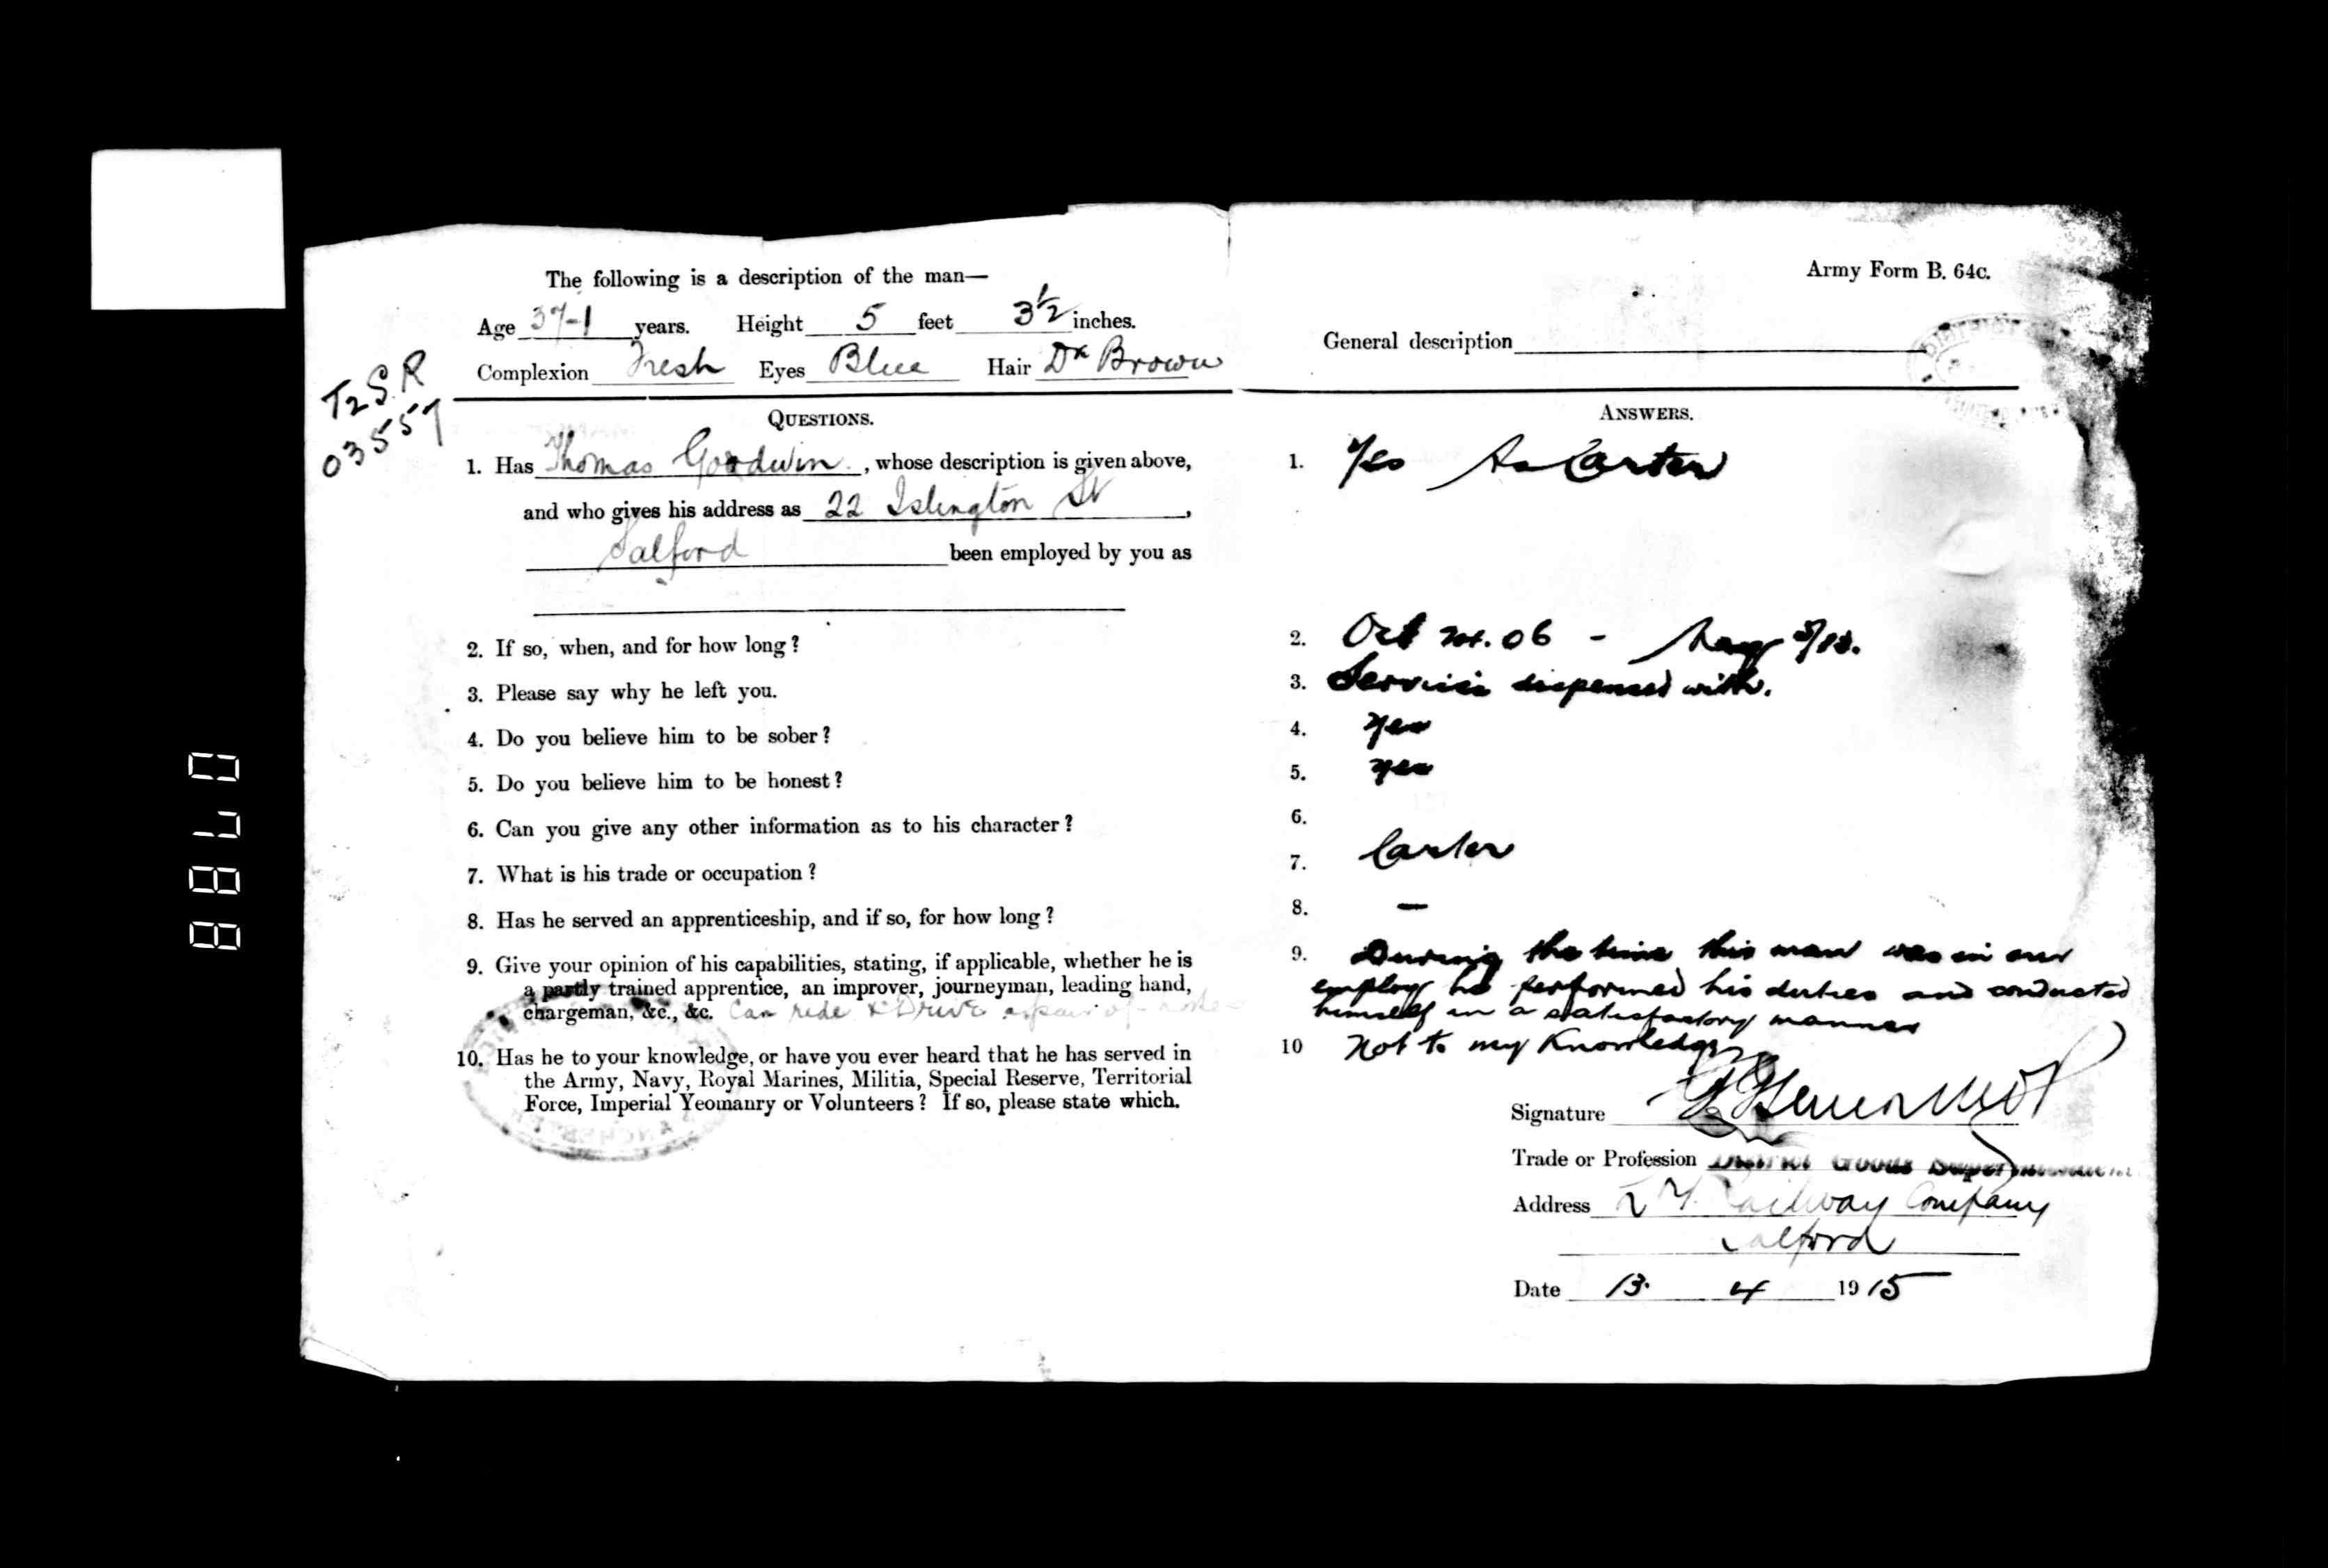 The following is a description of the man—
Age 37-1 years. Height 5 feet 3½ inches.
Complexion Fresh Eyes Blue Hair Dk Brown
T2 S.R
03557
QUESTIONS.
1. Has Thomas Goodwin, whose description is given above,
and who gives his address as 22 Islington St,
Salford been employed by you as
2. If so, when, and for how long?
3. Please say why he left you.
4. Do you believe him to be sober?
5. Do you believe him to be honest?
6. Can you give any other information as to his character?
7. What is his trade or occupation?
8. Has he served an apprenticeship, and if so, for how long?
9. Give your opinion of his capabilities, stating, if applicable, whether he is
a partly trained apprentice, an improver, journeyman, leading hand,
chargeman, &c., &c. Can ride & Drive a pair of
10. Has he to your knowledge, or have you ever heard that he has served in
the Army, Navy, Royal Marines, Militia, Special Reserve, Territorial
Force, Imperial Yeomanry or Volunteers? If so, please state which.
Army Form B. 64c.
General description
ANSWERS.
1. Yes As Carter
2. Oct 06 - May
3. Services dispensed with.
4. Yes
5. Yes
6.
7. Carter
8. —
9. During the time this man was in our
employ he performed his duties and conducted
himself in a satisfactory manner
10 Not to my Knowledge
Signature
Trade or Profession District Goods Superintendent
Address L Y Railway Company
Salford
Date 13. 4 1915
0788